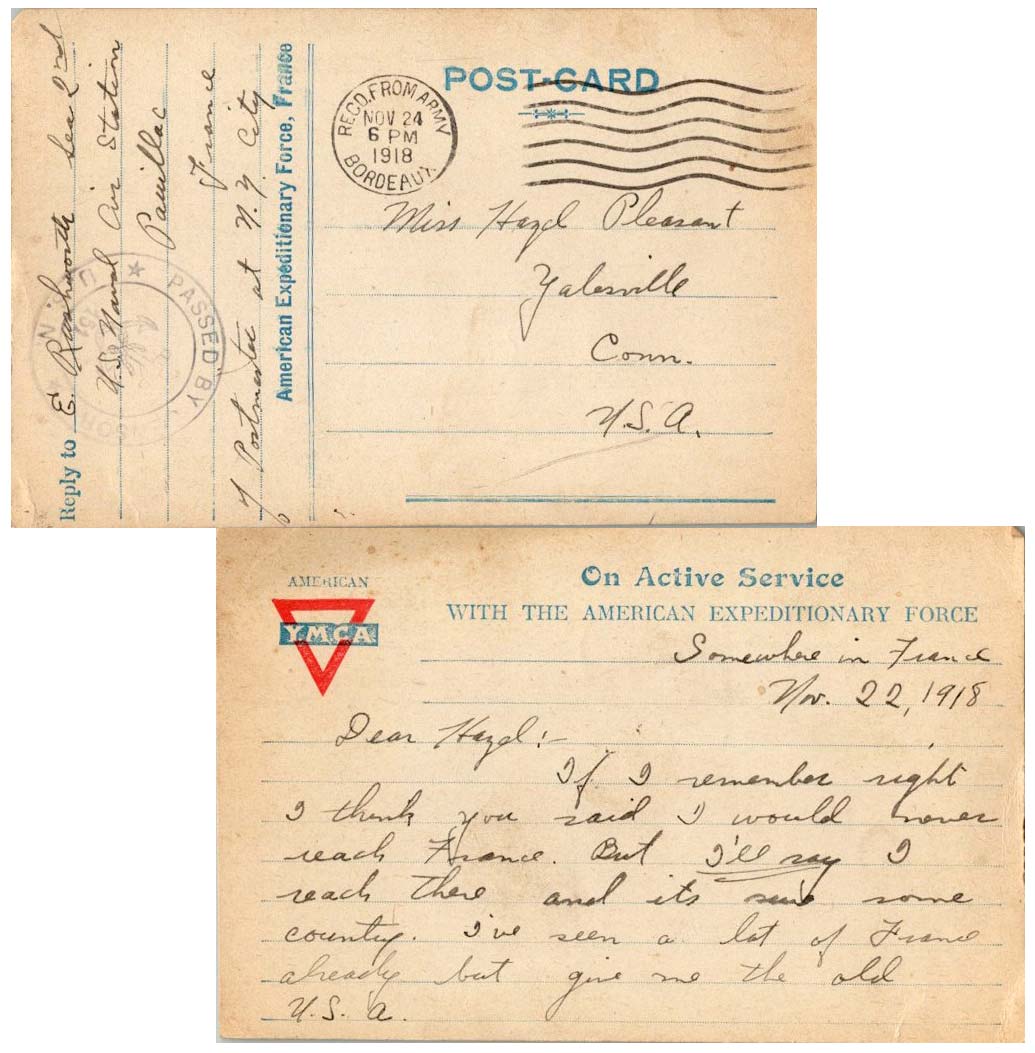 POST-CARD
REC'D. FROM ARMY
NOV 24
6 PM
1918
BORDEAUX.
Miss Hazel Pleasant
Yalesville
Conn.
U.S.A.
Reply to E. Rushworth Sea 2nd
U.S. Naval Air Station
Pauillac
France
% Postmaster at N.Y. City
American Expeditionary Force, France
PASSED BY
AMERICAN
Y.M.C.A
On Active Service
WITH THE AMERICAN EXPEDITIONARY FORCE
Somewhere in France
Nov. 22, 1918
Dear Hazel:-
If I remember right
I think you said I would never
reach France. But I'll say I
reach there and its sure some
country. I've seen a lot of France
already but give me the old
U.S.A.